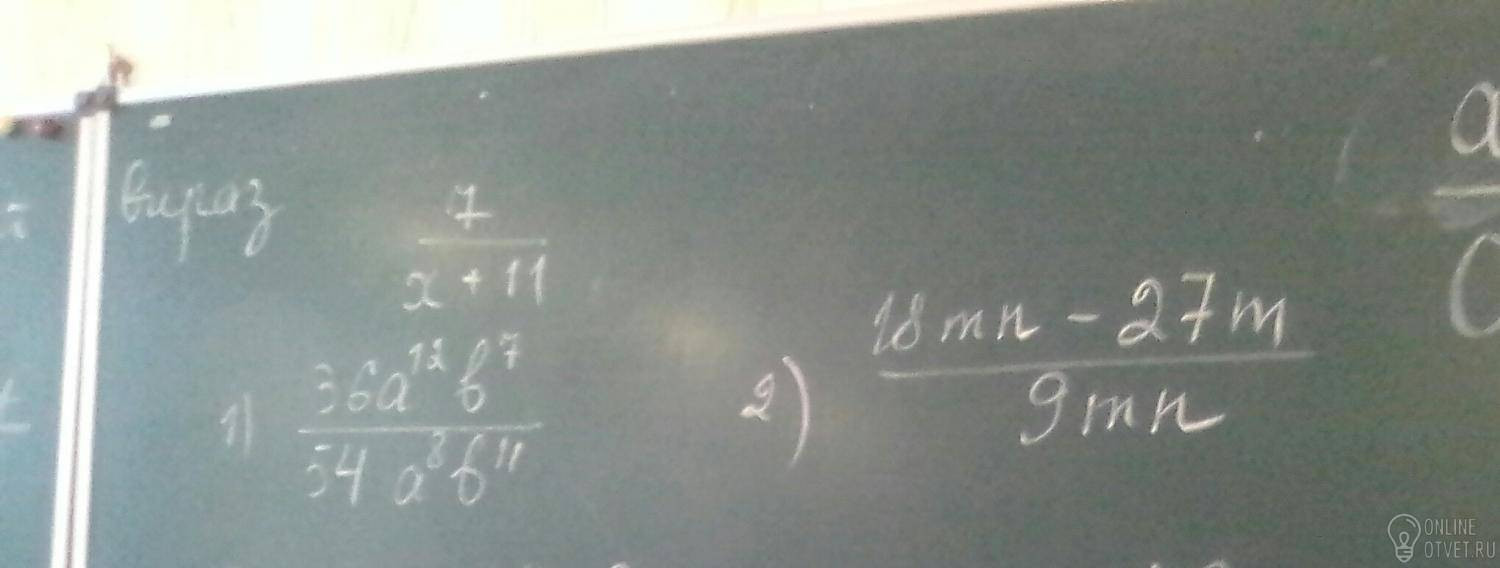 вираз 7/(x + 11)
1) 36a¹²b⁷/54a⁸b¹¹
2) (18mn - 27m)/9mn
a
ONLINE
OTVET.RU